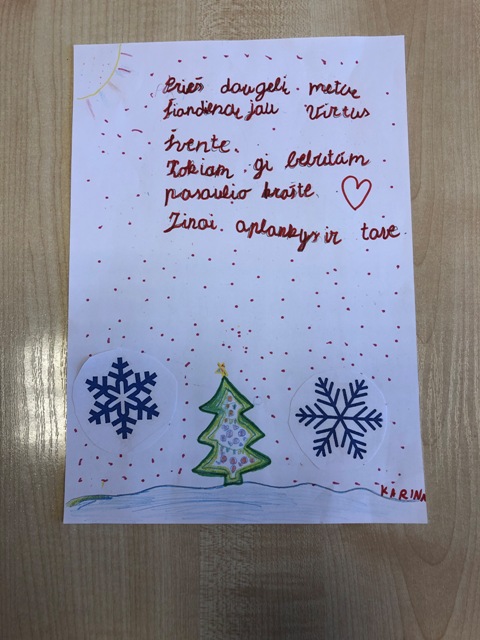 Prieš daugeli metus
šiandenas jau Virtus
švente.
Kokiam gi bebutam
pasaulio krašte
Žinai. aplankys ir tave
KARINA